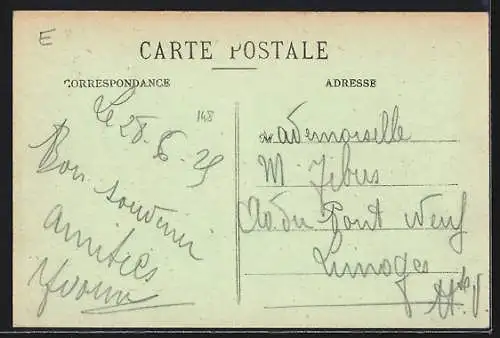 E
CARTE POSTALE
CORRESPONDANCE
ADRESSE
148
Le 28.6-25
Bon souvenir
amitiés
Yvonne
Mademoiselle
M Jebus
Av. du Pont Neuf
Limoges
Hte V.